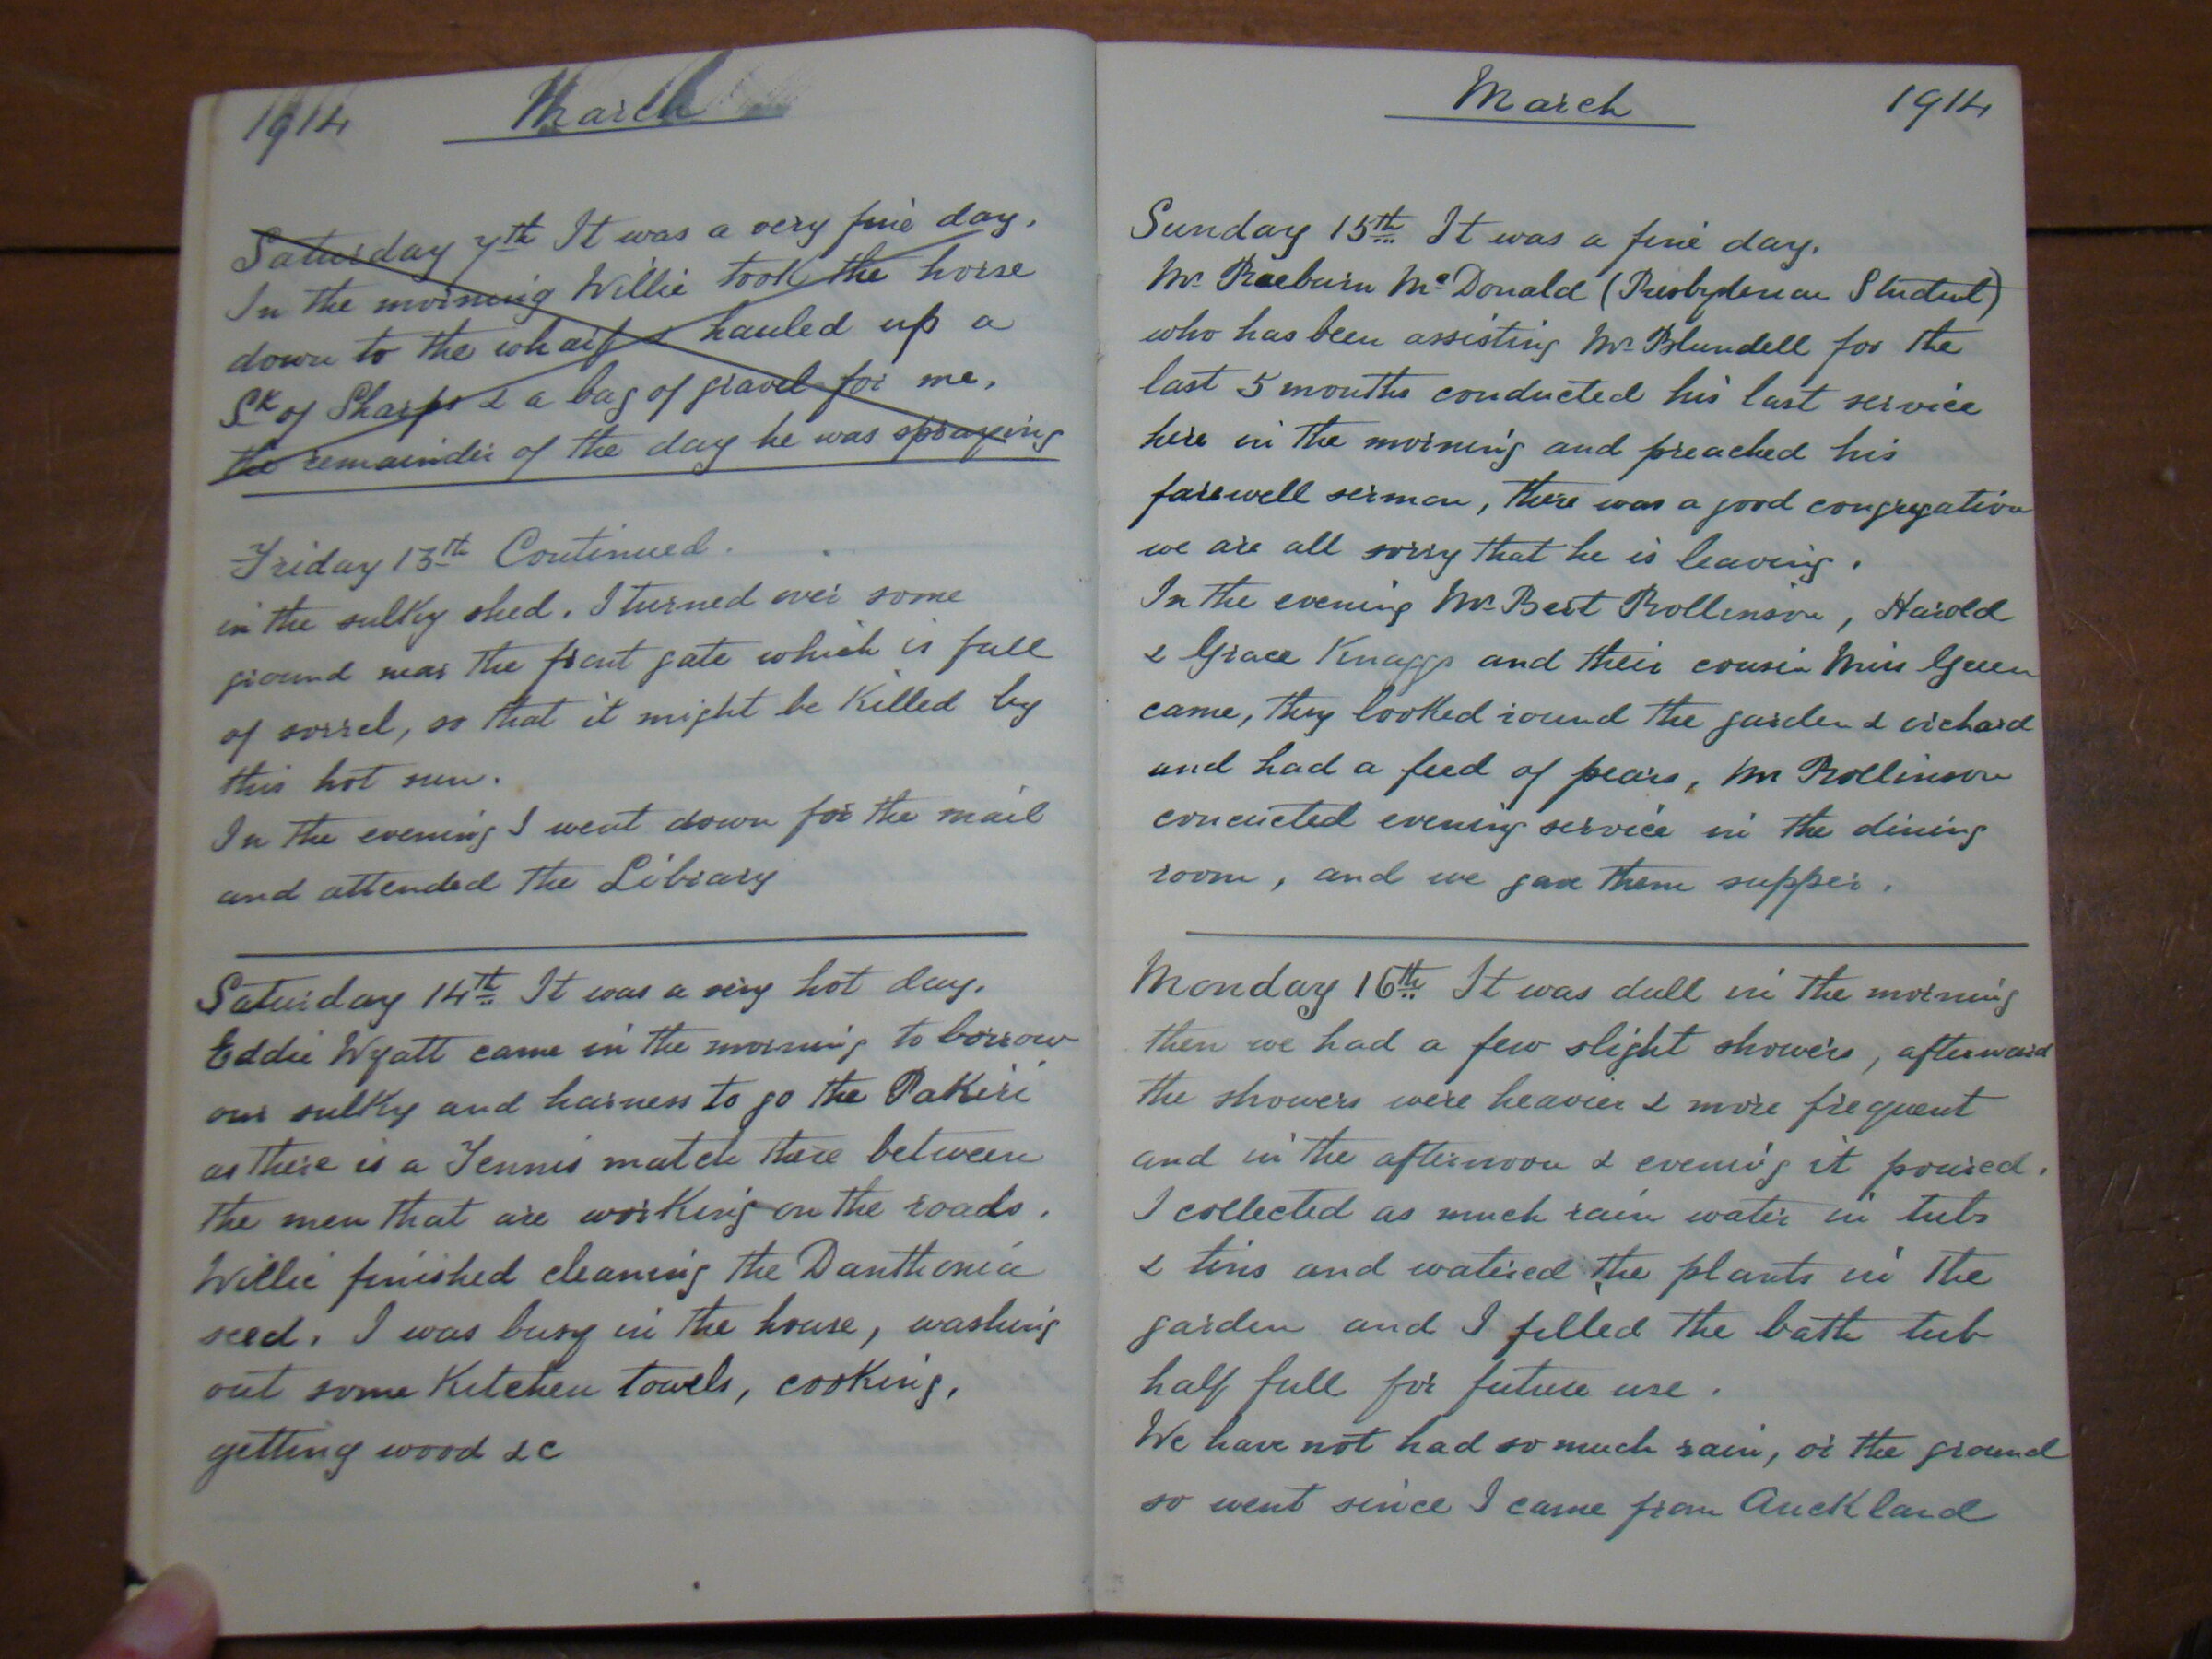 1914 March
Saturday 7th It was a very fine day.
In the morning Willie took the horse
down to the wharf & hauled up a
Sk of Sharps & a bag of gravel for me,
the remainder of the day he was spraying
Friday 13th Continued.
in the sulky shed. I turned over some
ground near the front gate which is full
of sorrel, so that it might be Killed by
this hot sun.
In the evening I went down for the mail
and attended the Library
Saturday 14th It was a very hot day.
Eddie Wyatt came in the morning to borrow
our sulky and harness to go the Pakiri
as there is a Tennis match there between
the men that are working on the roads.
Willie finished cleaning the Danthonia
seed. I was busy in the house, washing
out some Kitchen towels, cooking,
getting wood &c
March 1914
Sunday 15th It was a fine day.
Mr Raeburn McDonald (Presbyterian Student)
who has been assisting Mr Blundell for the
last 5 months conducted his last service
here in the morning and preached his
farewell sermon, there was a good congregation
we are all sorry that he is leaving.
In the evening Mr Bert Rollinson, Harold
& Grace Knaggs and their cousin Miss Green
came, they looked round the garden & orchard
and had a feed of pears, Mr Rollinson
concucted evening service in the dining
room, and we gave them supper.
Monday 16th It was dull in the morning
then we had a few slight showers, afterward
the showers were heavier & more frequent
and in the afternoon & evening it poured.
I collected as much rain water in tubs
& tins and watered the plants in the
garden and I filled the bath tub
half full for future use.
We have not had so much rain, or the ground
so went since I came from Auckland